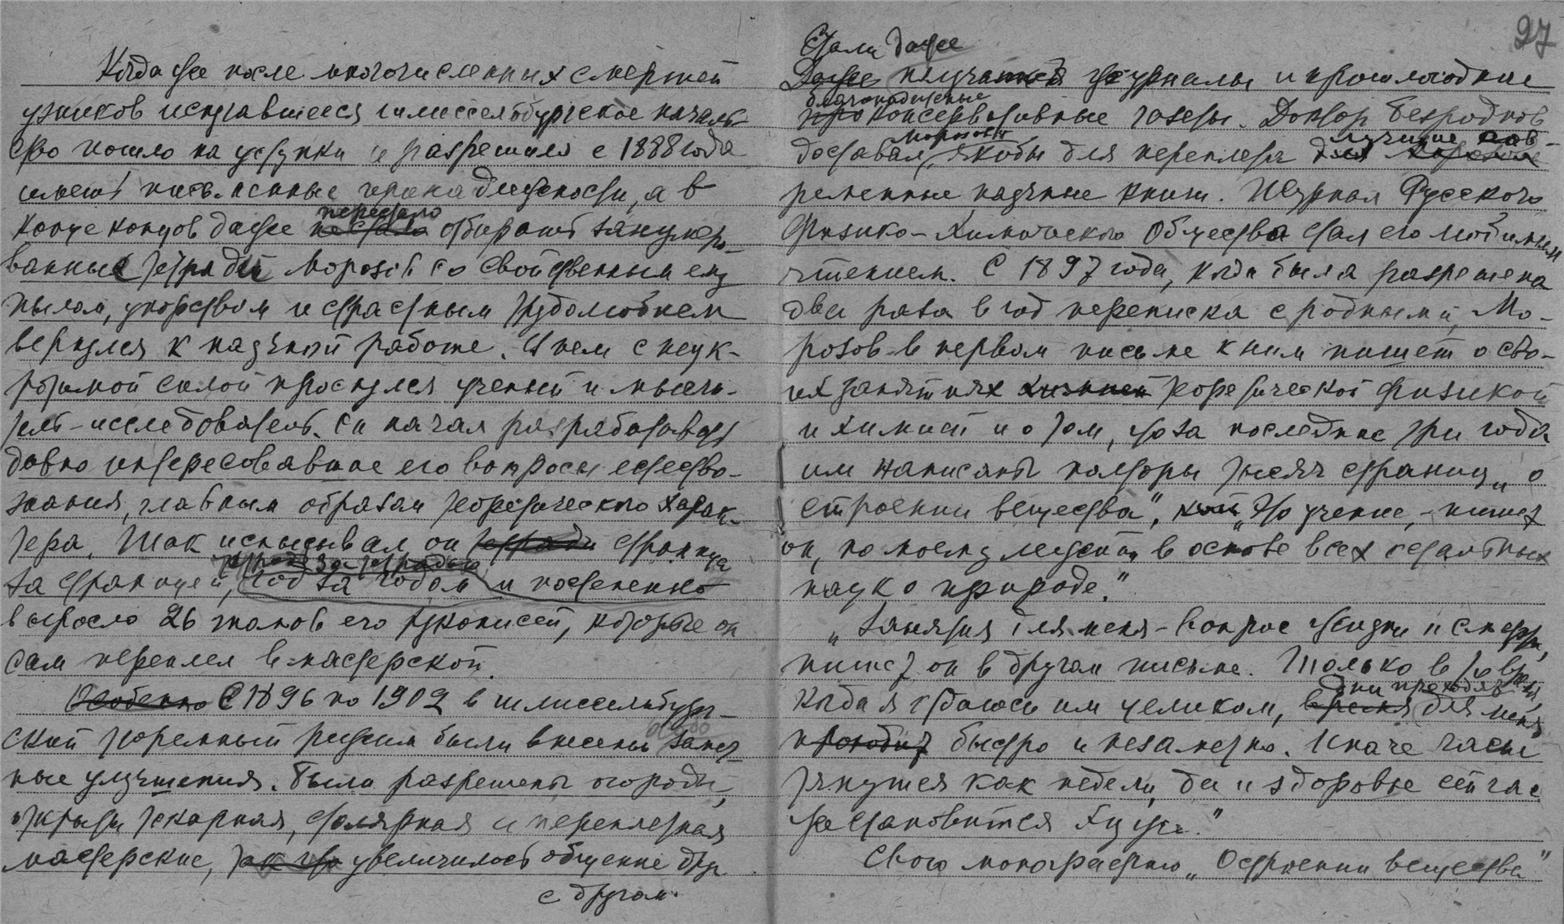 Когда же после многочисленных смертей
узников испугавшееся шлиссельбургское началь-
ство пошло на уступки и разрешило с 1888 года
иметь письменные принадлежности, а в
конце концов даже перестало отбирать занумеро-
ванные тетради Морозов со свойственным ему
пылом, упорством и страстным трудолюбием
вернулся к научной работе. В нем с неук-
ротимой силой проснулся ученый и мысли-
тель-исследователь. Он начал разрабатывать
давно интересовавшие его вопросы естество-
знания, главным образом теоретического харак-
тера. Так исписывал он страницу
за страницей, тетрадь за тетрадью год за годом и постепенно
выросло 26 томов его рукописей, которые он
сам переплел в мастерской.
Особенно С 1896 по 1902 в шлиссельбург-
ский тюремный режим были внесены замет-
ные улучшения. Были разрешены огороды,
открыты токарная, столярная и переплетная
мастерские, так что увеличилось общение друг
с другом.
27
Стали даже
журналы и прошлогодние
благонадежные
консервативные газеты. Доктор Безроднов
доставал Морозову якобы для переплета лучшие сов-
ременные научные книги. Журнал Русского
Физико-Химического Общества стал его любимым
чтением. С 1897 года, когда была разрешена
два раза в год переписка с родными, Мо-
розов в первом письме к ним пишет о сво-
их занятиях теоретической физикой
и химией и о том, что за последние три года
им написаны полторы тысячи страниц „о
строении вещества", „Это учение, - пишет
он, по моему лежит в основе всех остальных
наук о природе."
„Занятия для меня - вопрос жизни и смерти,
пишет он в другом письме. Только в то время,
когда я отдаюсь им целиком, дни проходят для меня
быстро и незаметно. Иначе часы
тянутся как недели, да и здоровье сейчас
же становится хуже."
Свою монографию „О строении вещества"